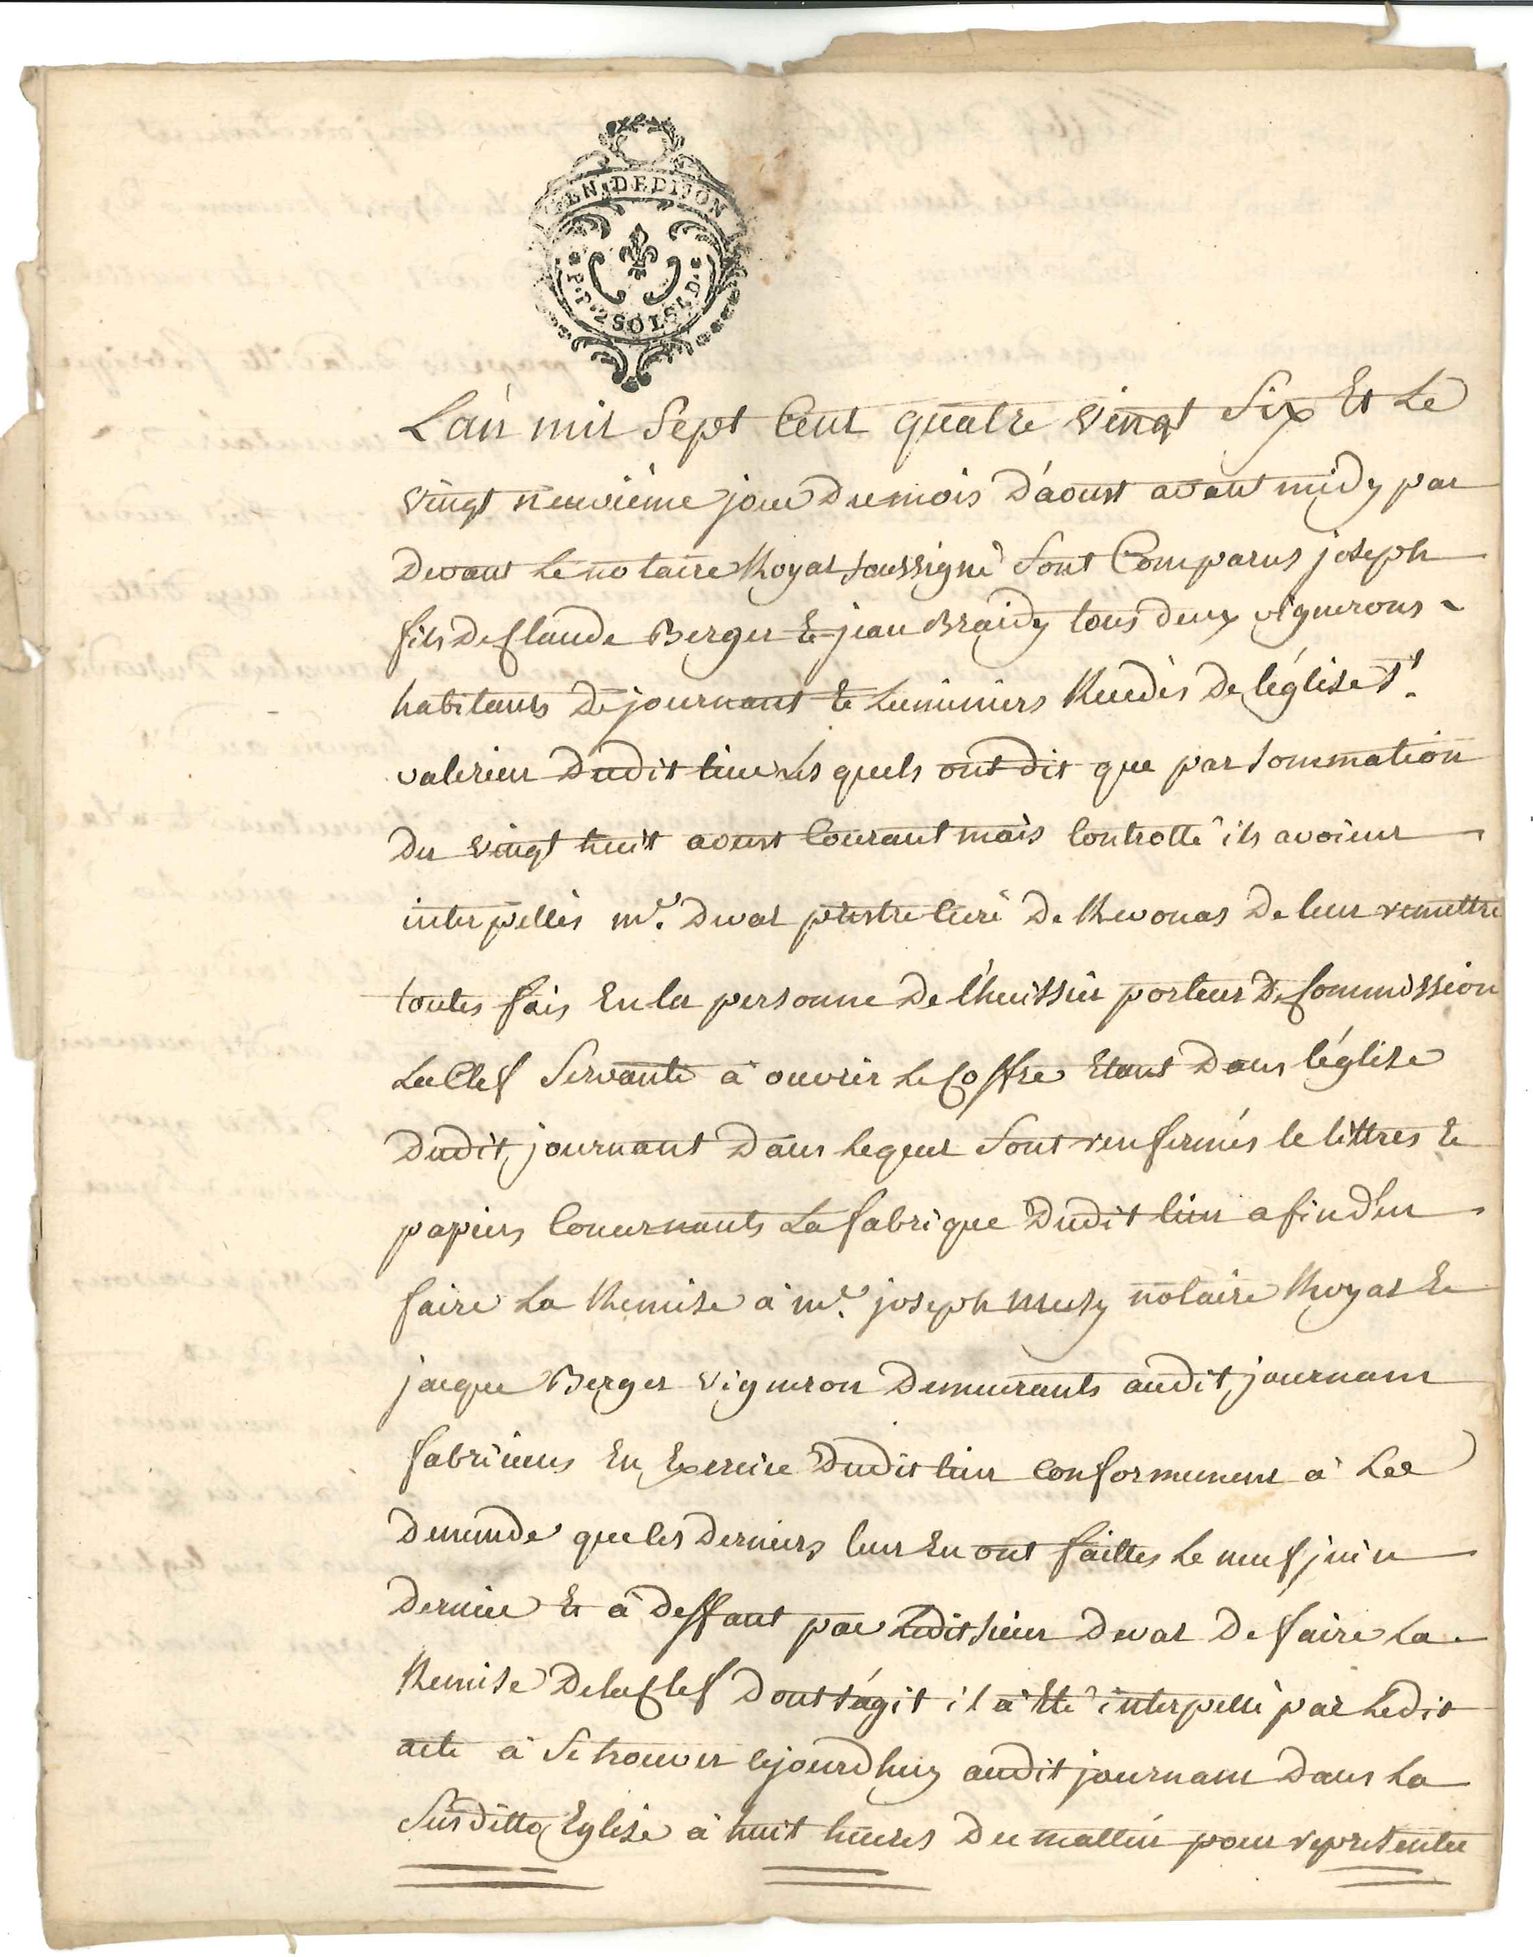 GEN. DE DIJON
P.P. 2 SOLS 4 D.
L'an mil Sept Cent quatre vingt Six Et Le
vingt neuvième jour du mois d'aoust avant midy par
devant Le notaire Royal soussigné Sont Comparus joseph
fils de Claude Berger et jean Braidy tous deux vignerons
habitants de journant et Luminiers Ruedès de l'église St.
valerien dudit lieu Lesquels ont dit que par sommation
du vingt huit aoust Courant mais Controllé ils avoient
interpellés mr. devat prêstre Curé de Revonas de leur remettre
toutes fois En la personne de l'huissier porteur de Commission
La Clef Servante à ouvrir Le Coffre Etant dans l'église
dudit journant dans Lequel Sont renfermés le littres et
papiers Concernants La fabrique dudit lieu afin d'en
faire La Remise à me. joseph Musy notaire Royal et
jacque Berger vigneron demeurants audit journant
fabriciens En Exercice dudit lieu Conformement à La
demende que les derniers leur En ont faittes Le neuf juin
dernier et à deffaut par Ledit sieur devat de faire La
Remise de la Clef dont s'agit il a Eté interpellé par Ledit
acte à Se trouver cejourd'huy audit journant dans La
Surditte Eglise à huit heures du mattin pour representer